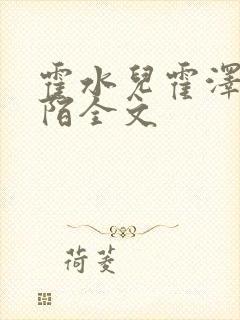 霍水兒霍澤
陌全文
荷菱